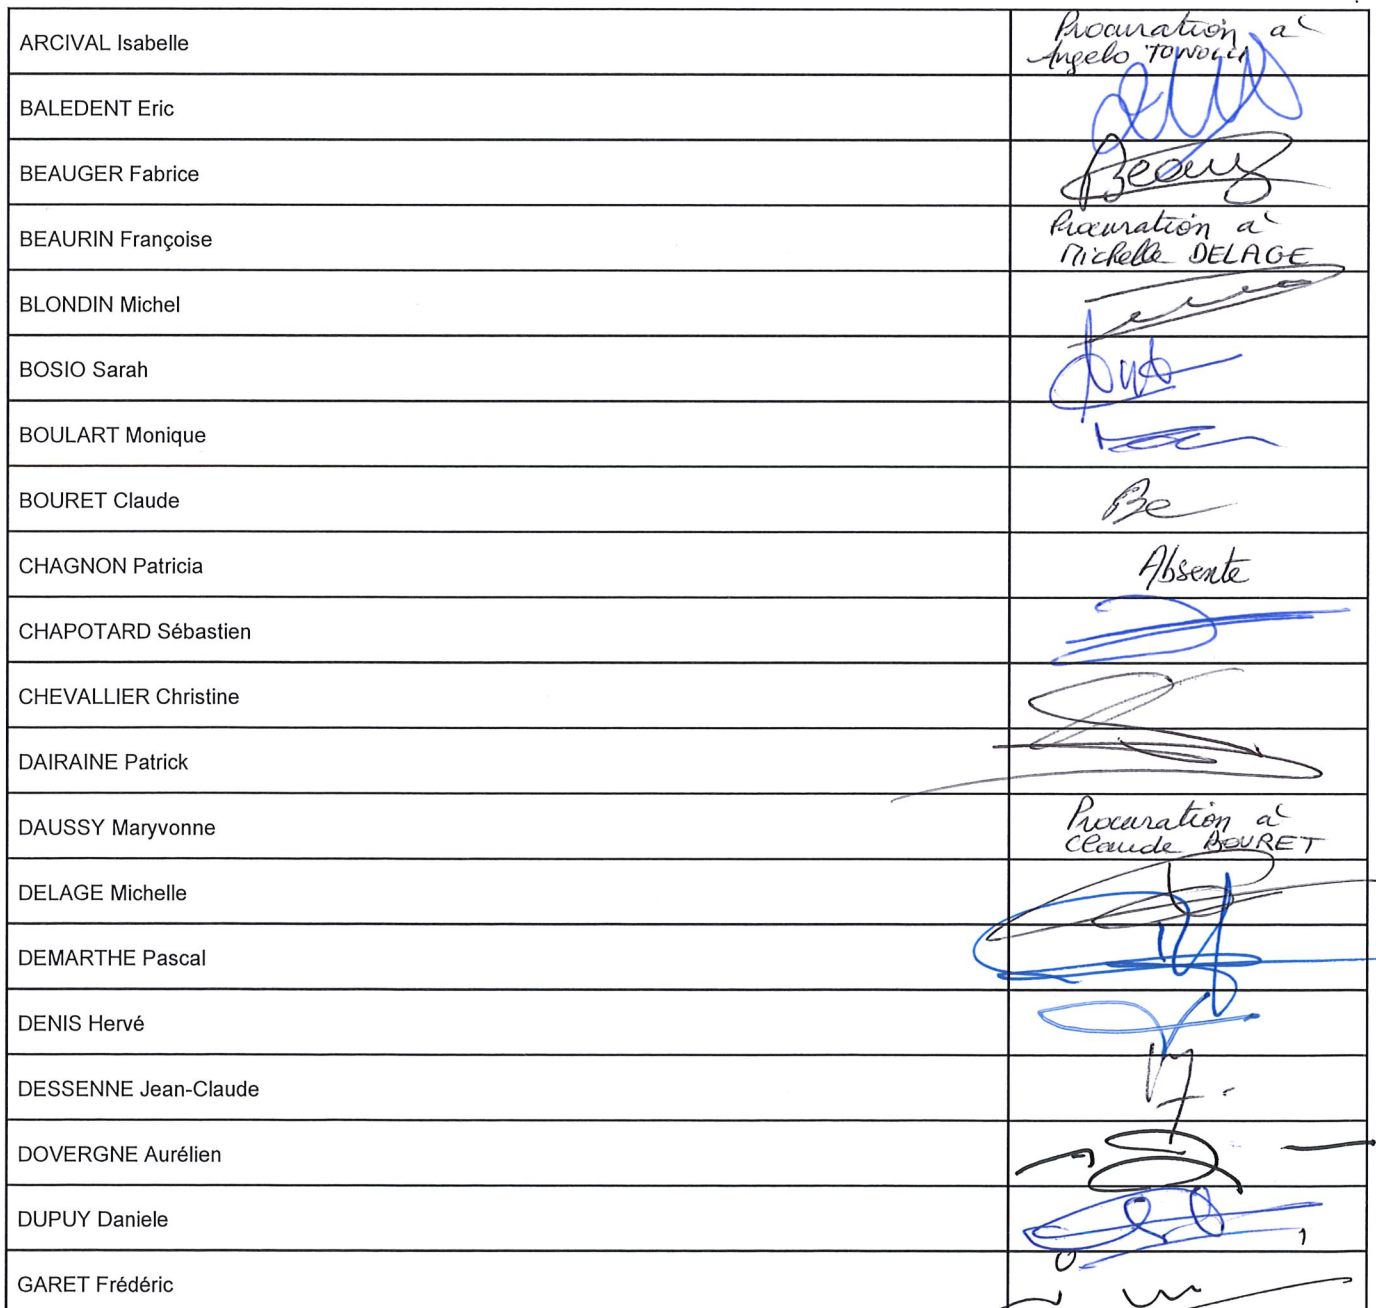 ARCIVAL Isabelle
Procuration à
Angelo TONOLLI
BALEDENT Eric
BEAUGER Fabrice
BEAURIN Françoise
Procuration à
Michelle DELAGE
BLONDIN Michel
BOSIO Sarah
BOULART Monique
BOURET Claude
Be
CHAGNON Patricia
Absente
CHAPOTARD Sébastien
CHEVALLIER Christine
DAIRAINE Patrick
DAUSSY Maryvonne
Procuration à
Claude BOURET
DELAGE Michelle
DEMARTHE Pascal
DENIS Hervé
DESSENNE Jean-Claude
DOVERGNE Aurélien
DUPUY Daniele
GARET Frédéric